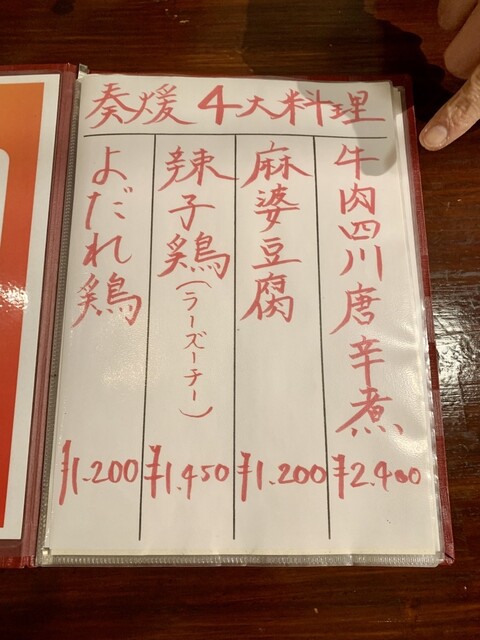 奏煖4大料理
牛肉四川唐辛煮
¥2.400
麻婆豆腐
¥1.200
辣子鶏(ラーズーチー)
¥1.450
よだれ鶏
¥1.200